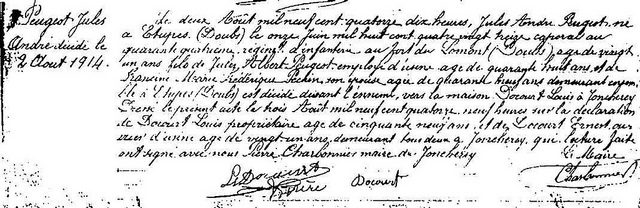 Peugeot Jules
André décédé le
2 Août 1914.
Le deux Août mil neuf cent quatorze dix heures, Jules André Peugeot, né
à Etupes (Doubs) le onze juin mil huit cent quatre vingt treize caporal au
quarante quatrième régiment d'infanterie au fort du Lomont (Doubs), âgé de vingt
un ans fils de Jules Albert Peugeot employé d'usine âgé de quarante huit ans, et de
Francine Marie Frédérique Péchin son épouse âgée de quarante neuf ans demeurant ensem
ble à Etupes (Doubs) est décédé devant l'ennemi, vers la maison Docourt Louis à Joncherey
Dressé le présent acte le trois Août mil neuf cent quatorze neuf heures sur la déclaration
de Docourt Louis propriétaire âgé de cinquante neuf ans, et de Docourt Ernest, ou
vrier d'usine âgé de vingt un ans, demeurant tous deux à Joncherey, qui, lecture faite
ont signé avec nous Pierre Charbonnier maire de Joncherey
Le Maire
L Docourt
Docourt
Charbonnier